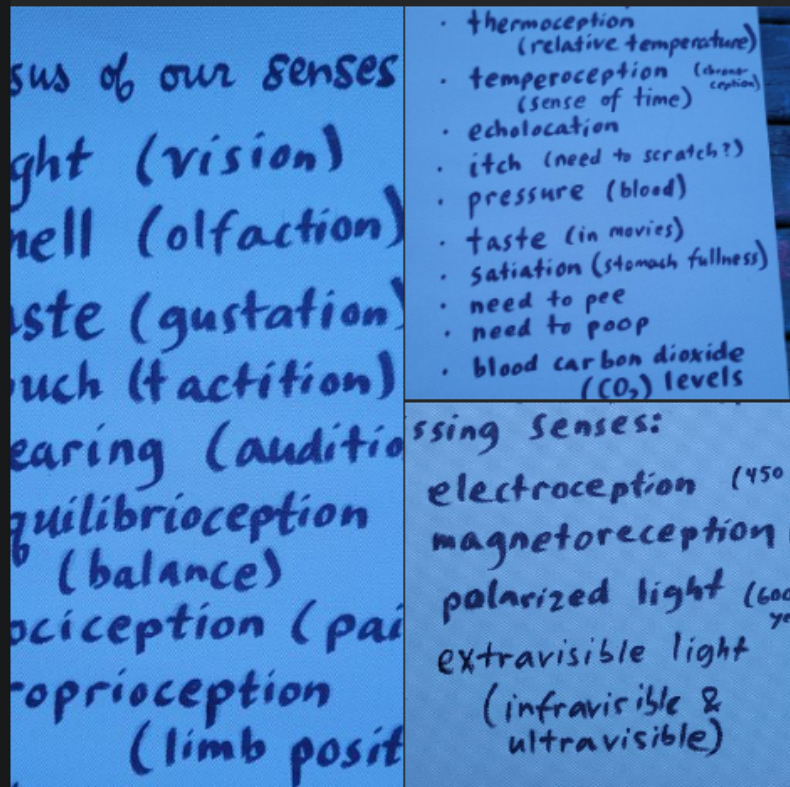 sus of our senses
ght (vision)
mell (olfaction)
aste (gustation)
ouch (tactition)
earing (auditio
quilibrioception
(balance)
ociception (pai
roprioception
(limb posit
· thermoception
(relative temperature)
· temperoception (chrono-
ception)
(sense of time)
· echolocation
· itch (need to scratch?)
· pressure (blood)
· taste (in movies)
· satiation (stomach fullness)
· need to pee
· need to poop
· blood carbon dioxide
(CO₂) levels
ssing senses:
electroception (450
magnetoreception
polarized light (600
ye
extravisible light
(infravisible &
ultravisible)